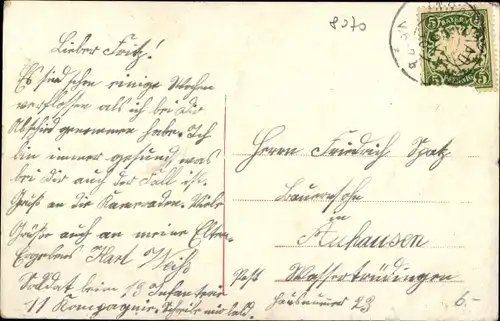 8070
BAYERN
5
5
Lieber Fritz!
Es sind schon einige Wochen
verflossen als ich bei dir
Abschied genommen habe. Ich
bin immer gesund was
bei dir auch der Fall ist.
Gruß an die Kameraden. Viele
Grüße auch an meine Eltern.
Ergebens Karl Weiß
Soldat beim 13 Infanterie
11 Kompagnie. Schreibe mir bald.
Herrn Friedrich Spatz
Bauerssohn
in
Auhausen
Post Wassertrüdingen
Hausnummer 23
6.-